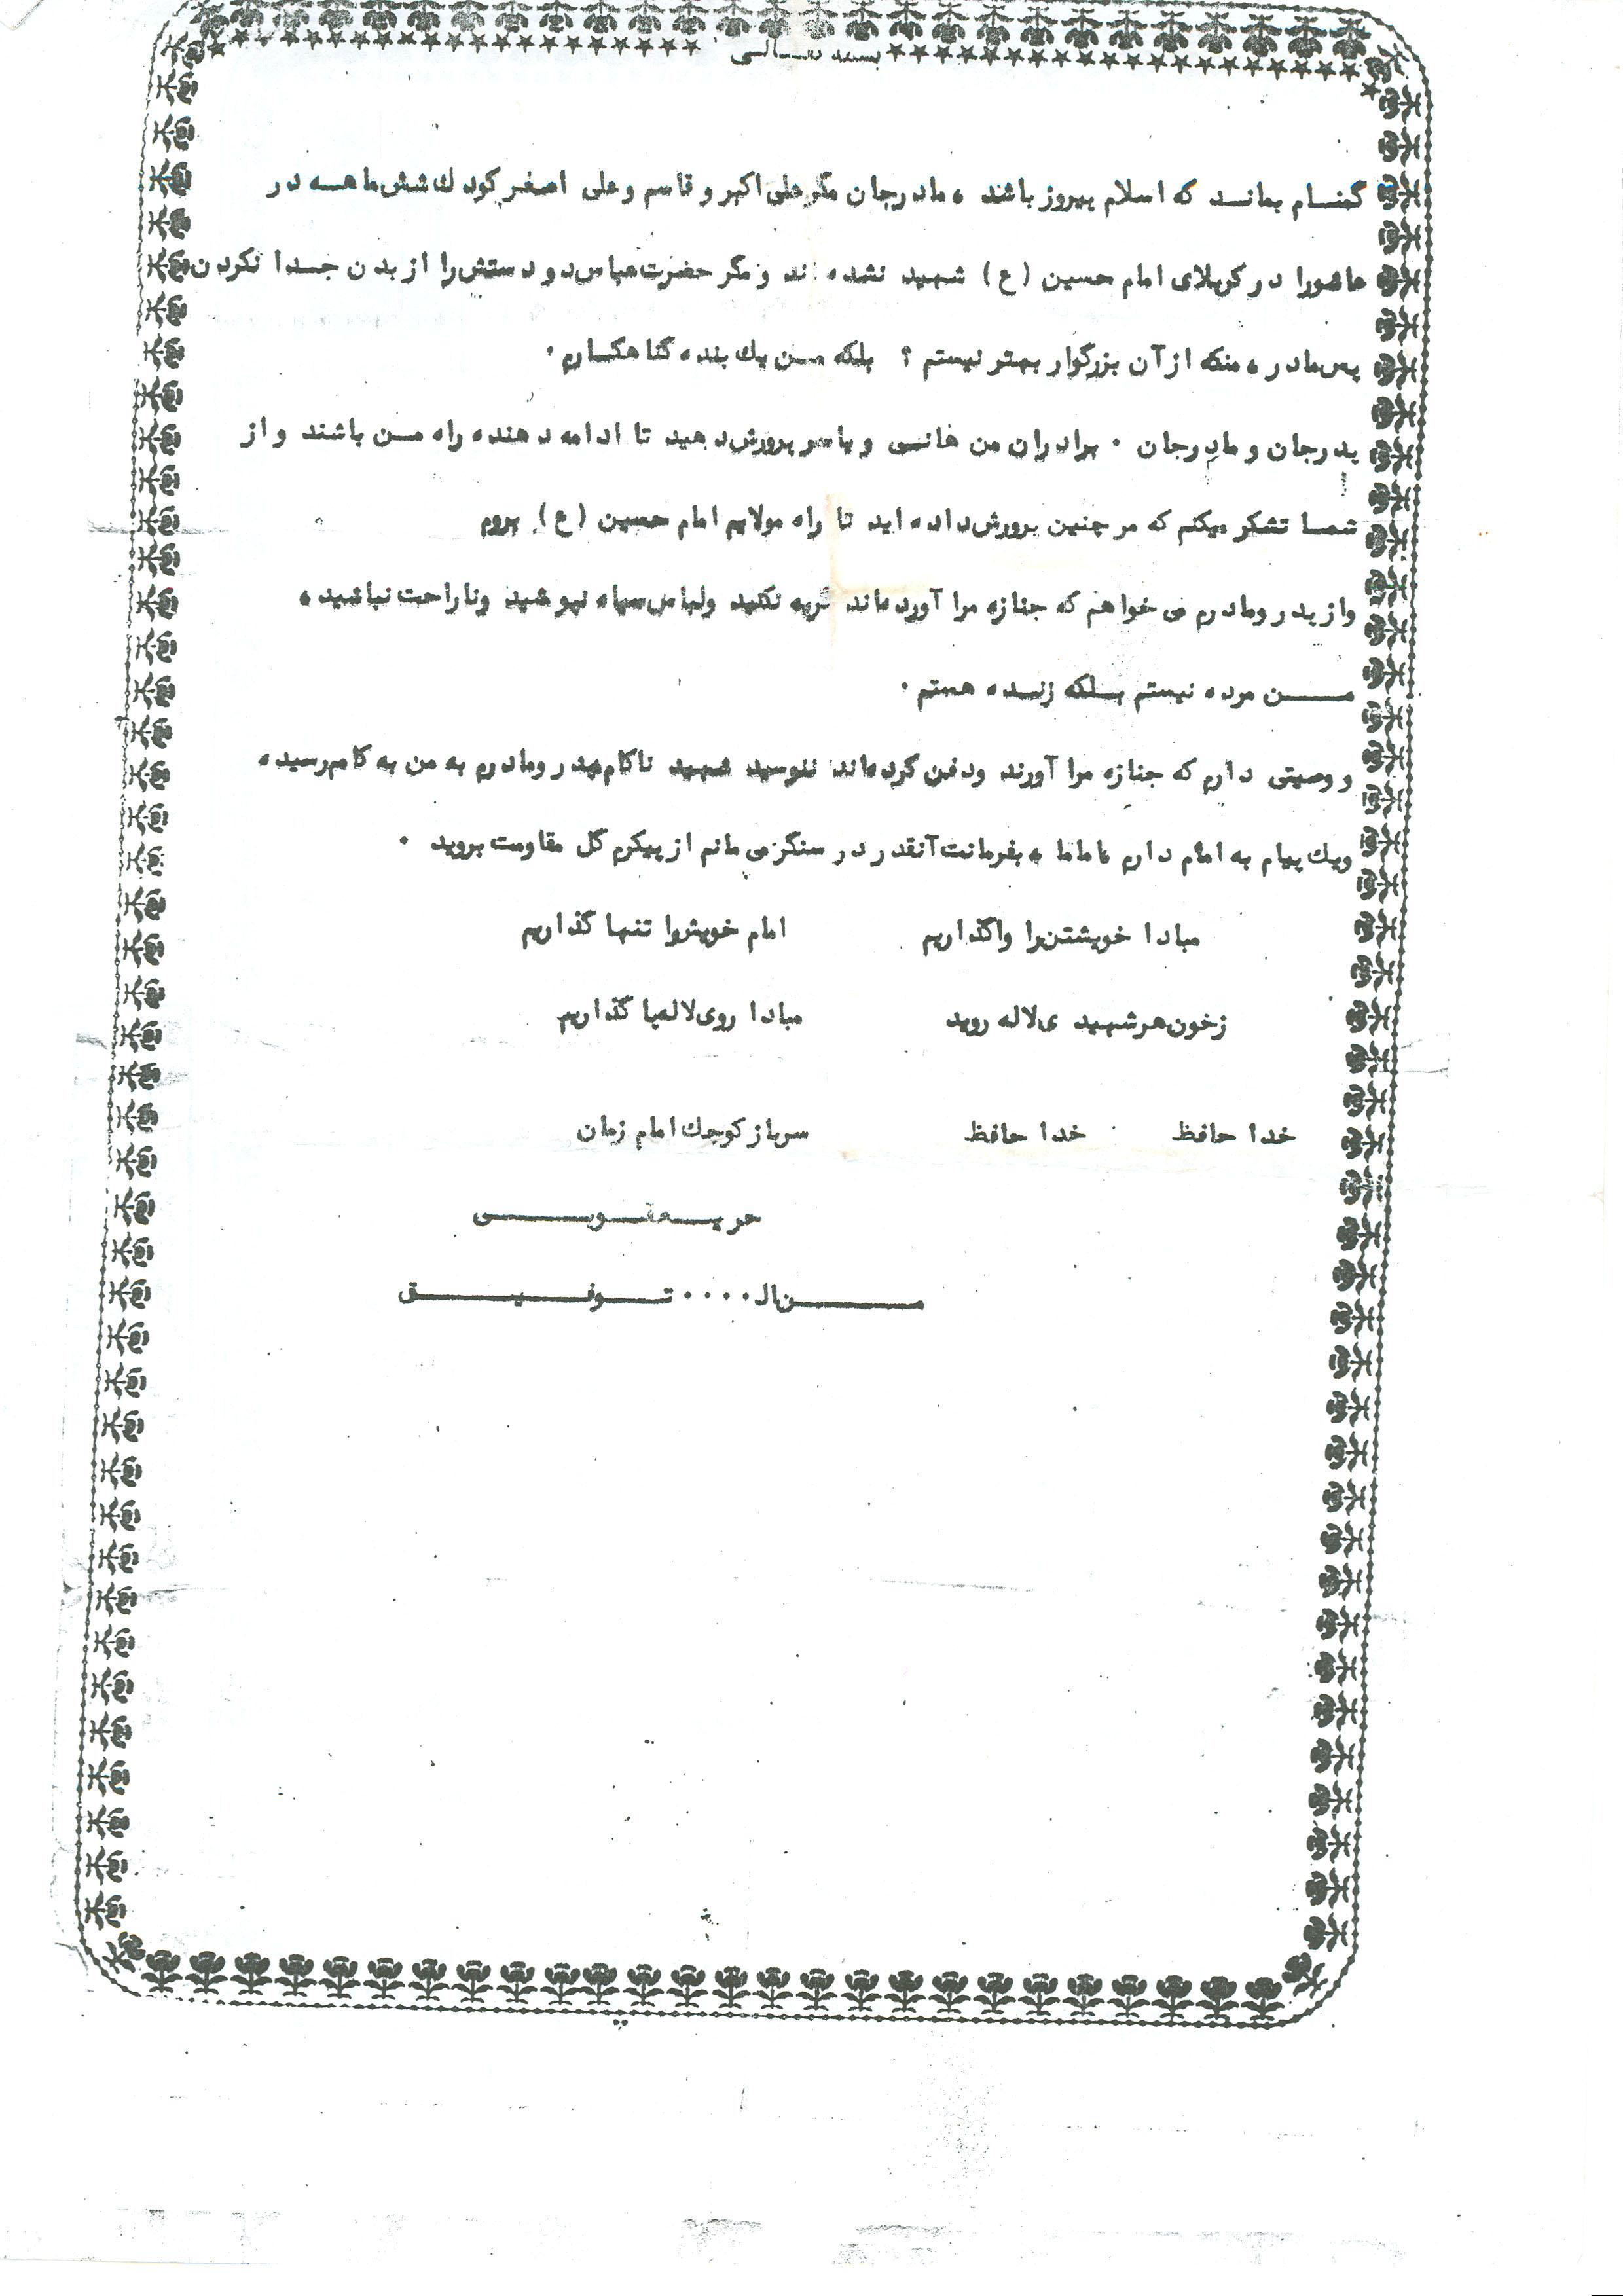 بسمه تعالی
گمنام بماند که اسلام پیروز باشند ، مادرجان مگر علی اکبر و قاسم و علی اصغر کودك شش ماهه در
عاشورا در کربلای امام حسین (ع) شهید نشده اند و مگر حضرت عباس دو دستش را از بدن جدا نکردن
پس مادر ، منکه از آن بزرگوار بهتر نیستم ؟ بلکه من یك بنده گناهکارم .
پدرجان و مادرجان . برادران من هانی و یاسر پرورش دهید تا ادامه دهنده راه من باشند و از
شما تشکر میکنم که مر چنین پرورش داده اید تا راه مولایم امام حسین (ع) بروم
واز پدر ومادرم می خواهم که جنازه مرا آورده اند گریه نکنید ولباس سیاه نپوشید وناراحت نباشید ،
من مرده نیستم بلکه زنده هستم .
و وصیتی دارم که جنازه مرا آورند ودفن کرده اند ننوسید شهید ناکام پدر ومادرم به من به کام رسیده
ویك پیام به امام دارم اماما ، بفرمانت آنقدر در سنگر می مانم از پیکرم گل مقاومت بروید .
مبادا خویشتن را واگذاریم امام خویش را تنها گذاریم
زخون هر شهیدی لاله روید مبادا روی لاله پا گذاریم
خدا حافظ خدا حافظ سرباز کوچك امام زمان
حر یعقوبی
من ال .... توفیق